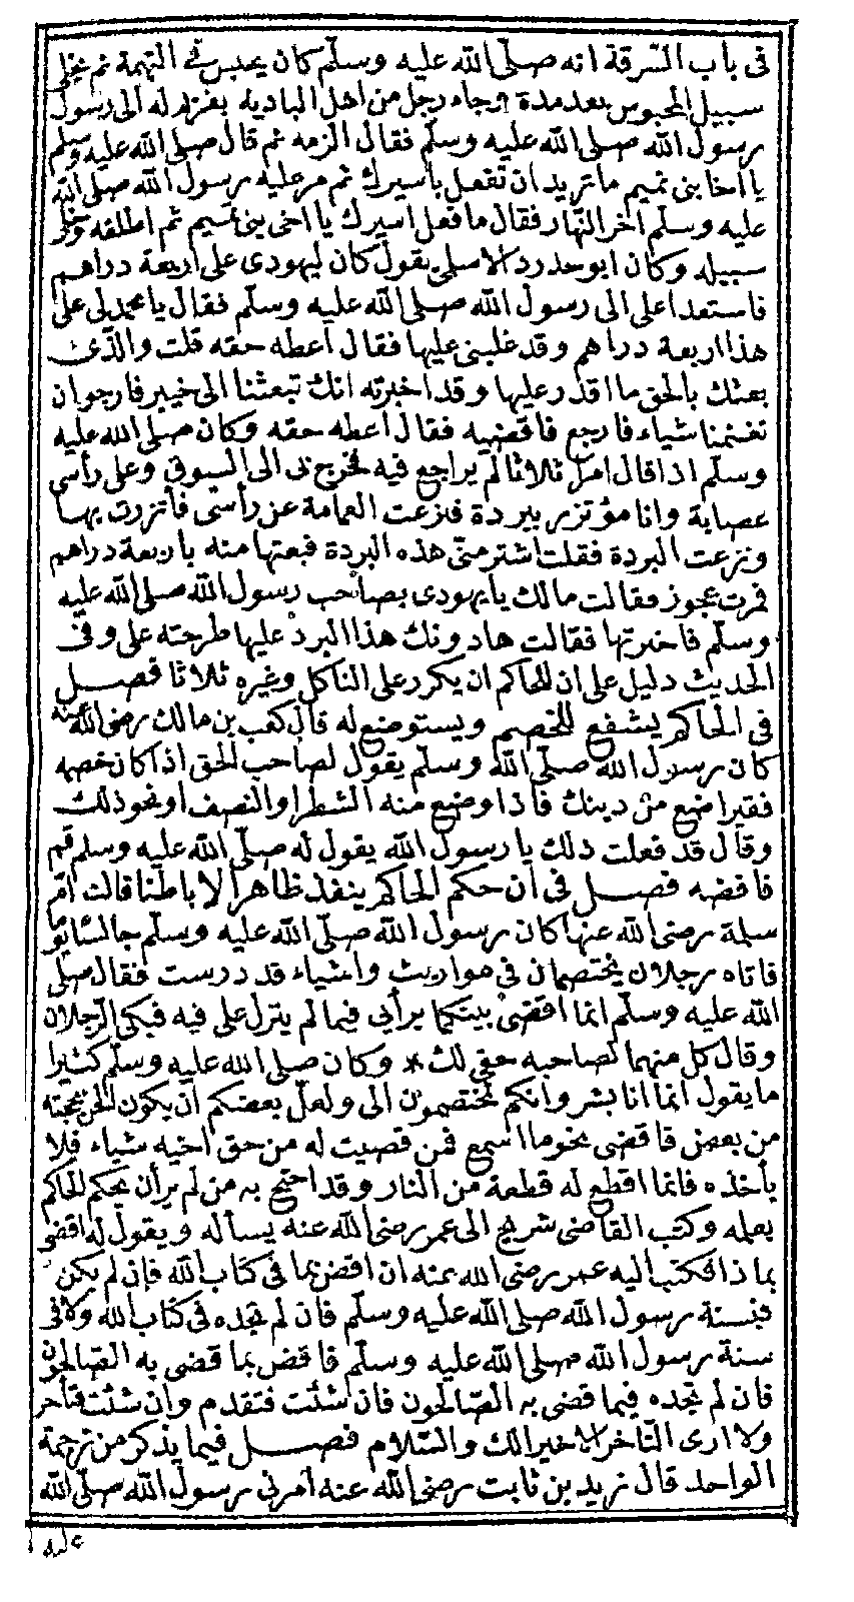 فى باب السّرقة انه صلّى الله عليه وسلّم كان يحبس فى التهمة ثم يخلى
سبيل المحبوس بعد مدة وجاء رجل من اهل البادية بغريم له الى رسول
رسول الله صلى الله عليه وسلّم فقال الزمه ثم قال صلى الله عليه وسلم
يا اخا بنى تميم ما تريد ان تفعل باسيرك ثم مر عليه رسول الله صلى الله
عليه وسلّم آخر النّهار فقال ما فعل اسيرك يا اخى بنى تميم ثم اطلقه وخلى
سبيله وكان ابو حدرد الاسلمى يقول كان ليهودى على اربعة دراهم
فاستعدا على الى رسول الله صلى الله عليه وسلم فقال يا محمد لى على
هذا اربعة دراهم وقد غلبنى عليها فقال اعطه حقه قلت والذى
بعثك بالحق ما اقدر عليها وقد اخبرته انك تبعثنا الى خيبر فارجو ان
تغنمنا شياء فارجع فاقضيه فقال اعطه حقه وكان صلى الله عليه
وسلّم اذا قال امرا ثلاثا لم يراجع فيه فخرج بى الى السوق وعلى رأسى
عصابة وانا مؤتزر ببردة فنزعت العمامة عن رأسى فأتزرت بها
ونزعت البردة فقلت اشتر منّى هذه البردة فبعتها منه باربعة دراهم
فمرت عجوز فقالت مالك يا يهودى بصاحب رسول الله صلى الله عليه
وسلّم فاخبرتها فقالت ها دونك هذا البرد عليها طرحته على وفى
الحديث دليل على ان للحاكم ان يكرر على الناكل وغيره ثلاثا فصل
فى الحاكم يشفع للخصم ويستوضع له قال كعب بن مالك رضى الله عنه
كان رسول الله صلّى الله وسلّم يقول لصاحب الحق اذا كان خصمه
فقيرا ضع من دينك فاذا وضع منه الشطر او النصف او نحو ذلك
وقال قد فعلت ذلك يا رسول الله يقول له صلّى الله عليه وسلم قم
فاقضه فصل فى ان حكم الحاكم ينفذ ظاهرا لا باطنا قالت امّ
سلمة رضى الله عنها كان رسول الله صلّى الله عليه وسلّم جالسا يوما
فاتاه رجلان يختصمان فى مواريث واشياء قد درست فقال صلى
الله عليه وسلّم انما اقضى بينكما برأيى فيما لم ينزل على فيه فبكى الرّجلان
وقال كل منهما لصاحبه حقى لك * وكان صلى الله عليه وسلّم كثيرا
ما يقول انما انا بشر وانكم تختصمون الى ولعلّ بعضكم ان يكون الحن بحجته
من بعض فاقضى بنحو ما اسمع فمن قضيت له من حق اخيه شياء فلا
يأخذه فانما اقطع له قطعة من النار وقد احتج به من لم ير أن يحكم الحاكم
بعلمه وكتب القاضى شريح الى عمر رضى الله عنه يسأله ويقول له اقضى
بما ذا فكتب اليه عمر رضى الله عنه ان اقض بما فى كتاب الله فإن لم يكن
فبسنة رسول الله صلى الله عليه وسلّم فان لم تجده فى كتاب الله ولا فى
سنة رسول الله صلى الله عليه وسلّم فاقض بما قضى به الصّالحون
فان لم تجده فيما قضى به الصّالحون فان شئت فتقدم وان شئت فتأخر
ولا ارى التّاخر الا خيرا لك والسّلام فصل فيما يذكر من ترجمة
الواحد قال زيد بن ثابت رضى الله عنه امرنى رسول الله صلّى الله
عليه